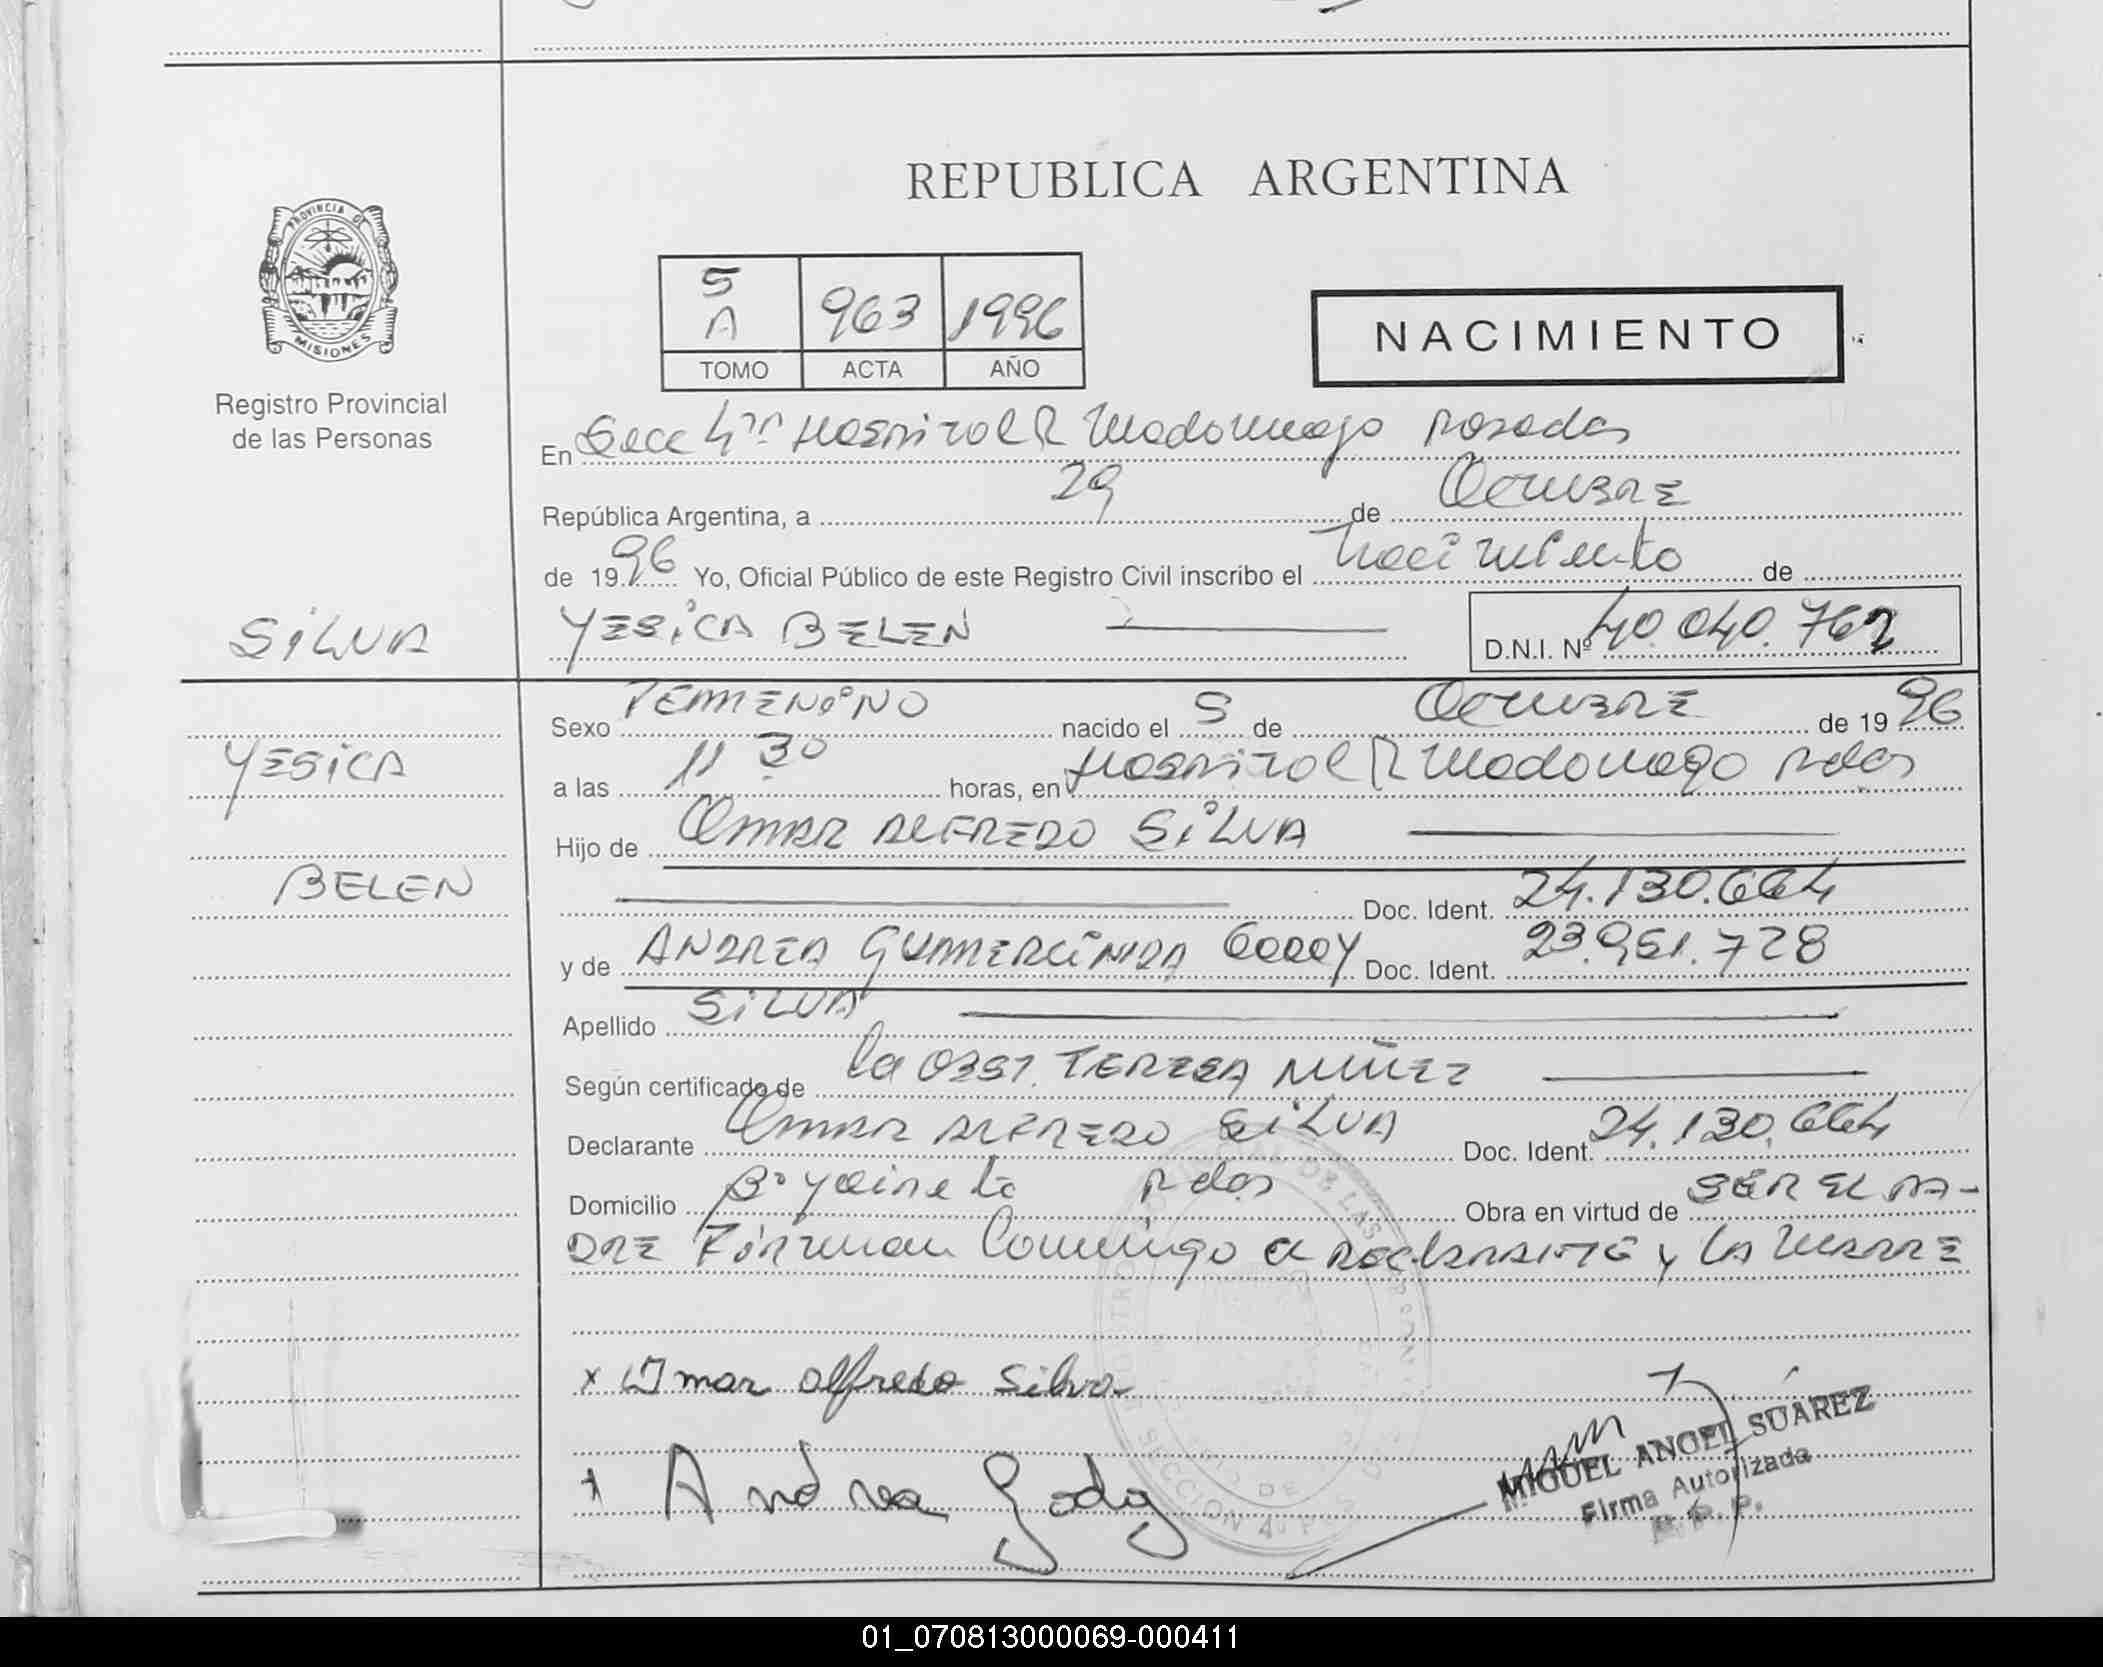 REPUBLICA ARGENTINA
PROVINCIA DE
MISIONES
Registro Provincial
de las Personas
5 A 963 1996
TOMO ACTA AÑO
NACIMIENTO
En Secc 4ta Hospital R Madariaga Posadas
República Argentina, a 29 de Octubre
de 1996 Yo, Oficial Público de este Registro Civil inscribo el Nacimiento de
SILVA YESICA BELEN D.N.I. Nº 40.040.762
Sexo FEMENINO nacido el 5 de Octubre de 1996
YESICA
a las 11 30 horas, en Hospital R Madariaga Pdas
Hijo de OMAR ALFREDO SILVA
BELEN
Doc. Ident. 24.130.664
y de ANDREA GUMERCINDA GODOY Doc. Ident. 23.951.728
Apellido SILVA
Según certificado de la OBST. TERESA NUÑEZ
Declarante OMAR ALFREDO SILVA Doc. Ident. 24.130.664
Domicilio Bº Yacireta Pdas Obra en virtud de SER EL PA-
DRE Firman Conmigo el DECLARANTE y LA MADRE
x Omar alfredo Silva
x Andrea Godoy
MIGUEL ANGEL SUAREZ
Firma Autorizada
R. P. P.
SECCION 4
01_070813000069-000411